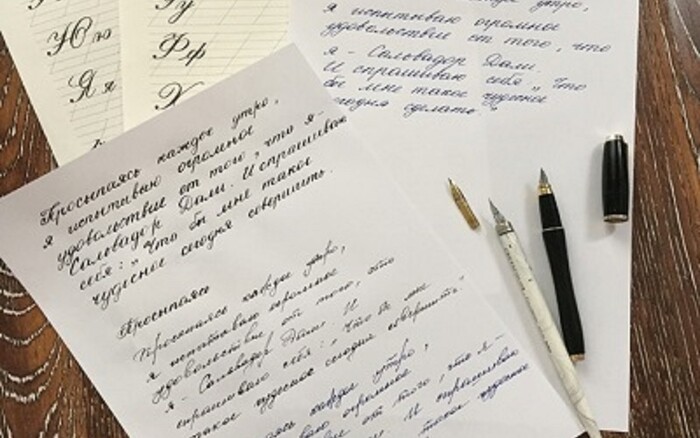 Ю ю
Я я
У у
Ф ф
Х
утро,
я испытываю огромное
удовольствие от того, что
я - Сальвадор Дали.
И спрашиваю себя „ Что
бы мне такое чудесное
сегодня сделать."
Просыпаясь каждое утро,
я испытываю огромное
удовольствие от того, что я -
Сальвадор Дали. И спрашиваю
себя: „Что бы мне такое
чудесное сегодня совершить.
Просыпаясь
Просыпаясь каждое утро,
я испытываю огромное
удовольствие от того, что
я - Сальвадор Дали. И
спрашиваю себя: „Что бы мне
такое чудесное сегодня совершить."
каждое утро,
огромное
от того, что я -
И спрашиваю
такое чудесное